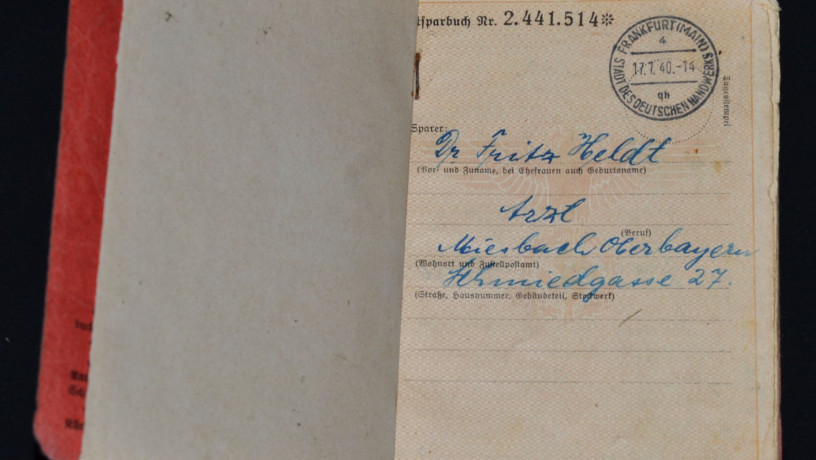 tsparbuch Nr. 2.441.514※
FRANKFURT(MAIN)
4
17.7.40.-14
qh
STADT DES DEUTSCHEN HANDWERKS
Tagesstempel
Sparer:
Dr Fritz Heldt
(Vor- und Zuname, bei Ehefrauen auch Geburtsname)
Arzt
(Beruf)
Miesbach Oberbayern
(Wohnort und Zustellpostamt)
27.
(Straße, Hausnummer, Gebäudeteil, Stockwerk)